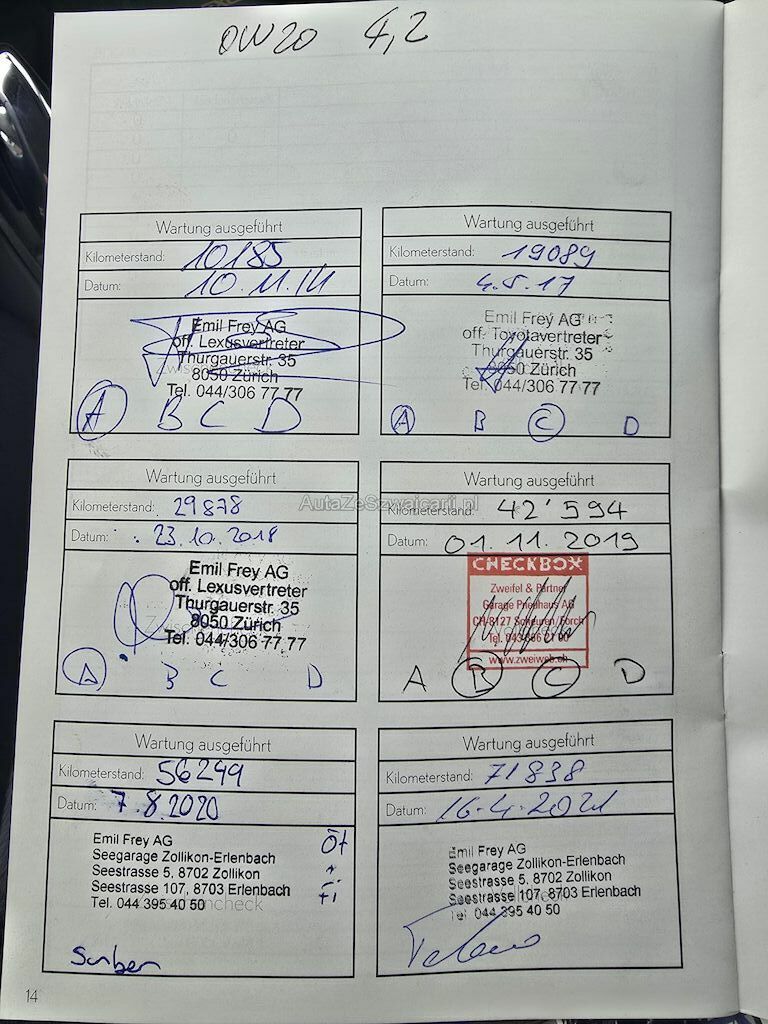 0W20 4,2
Wartung ausgeführt
Kilometerstand: 10185
Datum: 10.11.14
Emil Frey AG
off. Lexusvertreter
Thurgauerstr. 35
8050 Zürich
Tel. 044/306 77 77
A B C D
Wartung ausgeführt
Kilometerstand: 19089
Datum: 4.5.17
Emil Frey AG
off. Toyotavertreter
Thurgauerstr. 35
8050 Zürich
Tel. 044/306 77 77
A B C D
Wartung ausgeführt
Kilometerstand: 29878
Datum: 23.10.2018
Emil Frey AG
off. Lexusvertreter
Thurgauerstr. 35
8050 Zürich
Tel. 044/306 77 77
A B C D
AutaZeSzwajcarii.pl
Wartung ausgeführt
Kilometerstand: 42'594
Datum: 01.11.2019
CHECKBOX
Zweifel & Partner
Garage
CH-8127 Scheuren/Forch
www.zweiweb.ch
A B C D
Wartung ausgeführt
Kilometerstand: 56249
Datum: 7.8.2020
Emil Frey AG
Seegarage Zollikon-Erlenbach
Seestrasse 5, 8702 Zollikon
Seestrasse 107, 8703 Erlenbach
Tel. 044 395 40 50
Wartung ausgeführt
Kilometerstand: 71838
Datum: 16.4.2021
Emil Frey AG
Seegarage Zollikon-Erlenbach
Seestrasse 5, 8702 Zollikon
Seestrasse 107, 8703 Erlenbach
Tel 044 395 40 50
14